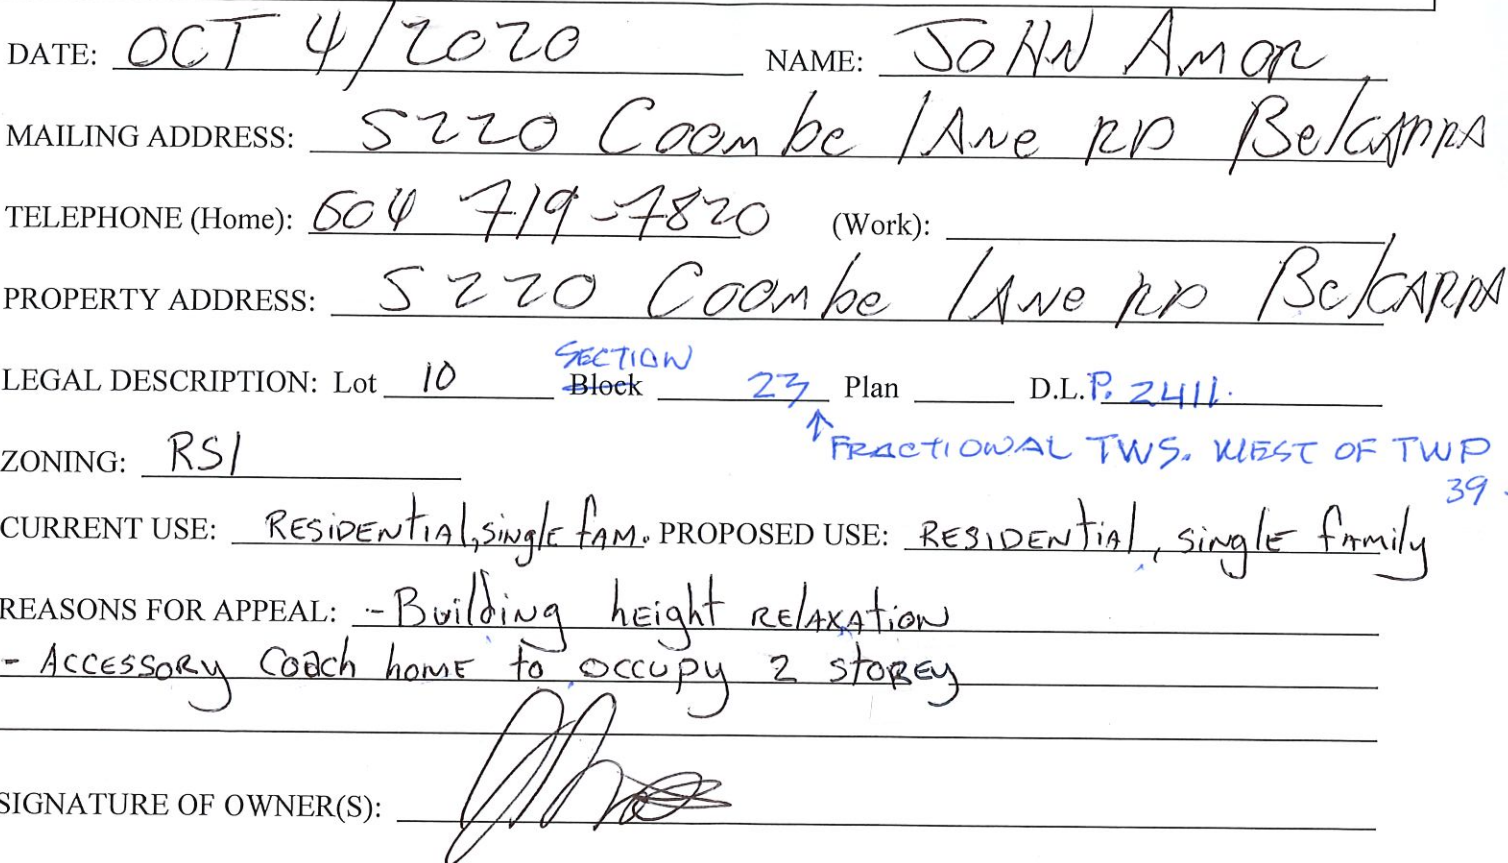 DATE: OCT 4/2020 NAME: JOHN AMOR
MAILING ADDRESS: 5220 Coombe lANe RD BelcARRA
TELEPHONE (Home): 604 719-7820 (Work):
PROPERTY ADDRESS: 5220 Coombe lANe RD BelCARRA
SECTION
LEGAL DESCRIPTION: Lot 10 Block 23 Plan D.L. P. 2411.
FRACTIONAL TWS. WEST OF TWP
39.
ZONING: RS1
CURRENT USE: RESiDENtiAl, single fAM. PROPOSED USE: RESIDENtiAl, singlE fAmily
REASONS FOR APPEAL: - Building hEight RElAXAtioN
- ACCESSORY COach homE to OCCUPY 2 StoREY
SIGNATURE OF OWNER(S):